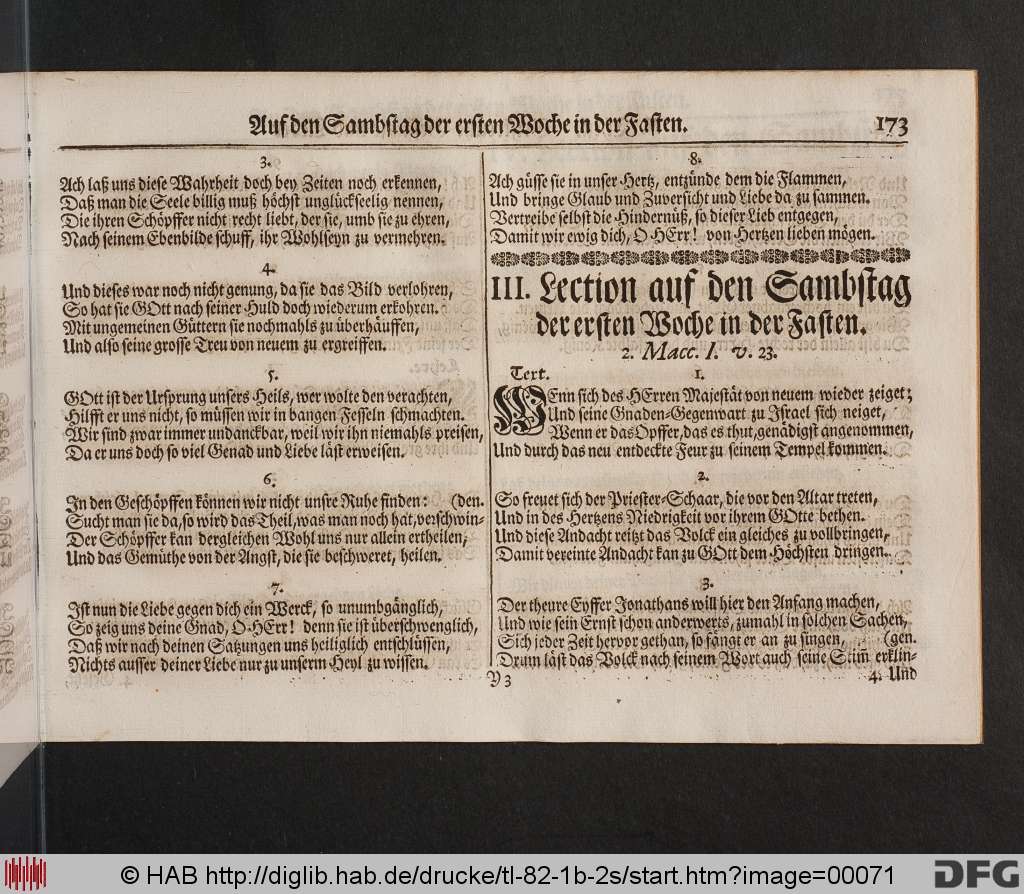 Auf den Sambstag der ersten Woche in der Fasten. 173
3.
Ach laß uns diese Wahrheit doch bey Zeiten noch erkennen,
Daß man die Seele billig muß höchst unglückseelig nennen,
Die ihren Schöpffer nicht recht liebt, der sie, umb sie zu ehren,
Nach seinem Ebenbilde schuff, ihr Wohlseyn zu vermehren.
4.
Und dieses war noch nicht genung, da sie das Bild verlohren,
So hat sie GOtt nach seiner Huld doch wiederum erkohren.
Mit ungemeinen Güttern sie nochmahls zu überhäuffen,
Und also seine grosse Treu von neuem zu ergreiffen.
5.
GOtt ist der Ursprung unsers Heils, wer wolte den verachten,
Hilfft er uns nicht, so müssen wir in bangen Fesseln schmachten.
Wir sind zwar immer undanckbar, weil wir ihn niemahls preisen,
Da er uns doch so viel Genad und Liebe läst erweisen.
6.
In den Geschöpffen können wir nicht unsre Ruhe finden: (den.
Sucht man sie da, so wird das Theil, was man noch hat, verschwin-
Der Schöpffer kan dergleichen Wohl uns nur allein ertheilen,
Und das Gemüthe von der Angst, die sie beschweret, heilen.
7.
Ist nun die Liebe gegen dich ein Werck, so unumbgänglich,
So zeig uns deine Gnad, O HErr! denn sie ist überschwenglich,
Daß wir nach deinen Satzungen uns heiliglich entschlüssen,
Nichts ausser deiner Liebe nur zu unserm Heyl zu wissen.
8.
Ach güsse sie in unser Hertz, entzünde dem die Flammen,
Und bringe Glaub und Zuversicht und Liebe da zu sammen.
Vertreibe selbst die Hindernüß, so dieser Lieb entgegen,
Damit wir ewig dich, O HErr! von Hertzen lieben mögen.
III. Lection auf den Sambstag
der ersten Woche in der Fasten.
2. Macc. I. v. 23.
Text. 1.
WEnn sich des HErren Majestät von neuem wieder zeiget;
Und seine Gnaden-Gegenwart zu Israel sich neiget,
Wenn er das Opffer, das es thut, genädigst angenommen,
Und durch das neu entdeckte Feur zu seinem Tempel kommen.
2.
So freuet sich der Priester-Schaar, die vor den Altar treten,
Und in des Hertzens Niedrigkeit vor ihrem GOtte bethen.
Und diese Andacht reitzt das Volck ein gleiches zu vollbringen,
Damit vereinte Andacht kan zu GOtt dem Höchsten dringen.
3.
Der theure Eyffer Jonathans will hier den Anfang machen,
Und wie sein Ernst schon anderwerts, zumahl in solchen Sachen,
Sich jeder Zeit hervor gethan, so fängt er an zu singen, (gen.
Drum läst das Volck nach seinem Wort auch seine Stim̃ erklin-
Y 3 4. Und
© HAB http://diglib.hab.de/drucke/tl-82-1b-2s/start.htm?image=00071
DFG